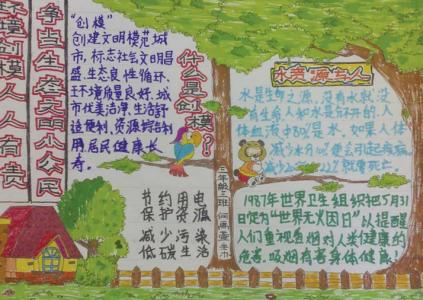 环境创模人人有责
争当生态文明小公民
"创模"
创建文明模范城
市,标志社会文明昌
盛,生态良性循环、
环境质量良好,城
市优美洁净,生活舒
适便利,资源综合利
用,居民健康长
寿。
什么是创模?!
节约用电
保护资源
减少污染
低碳生活
三年级二班
水资源与人
水是生命之源,没有水就没
有生命人和水是分不开的,人
体血液中80%是水,如果人体
减少水
会引起疾病,
就要死亡。
1987年世界卫生组织把5月31
日定为"世界无火因日"从提醒
人们重视吸烟对人类健康的
危害,吸烟有害身体健康!